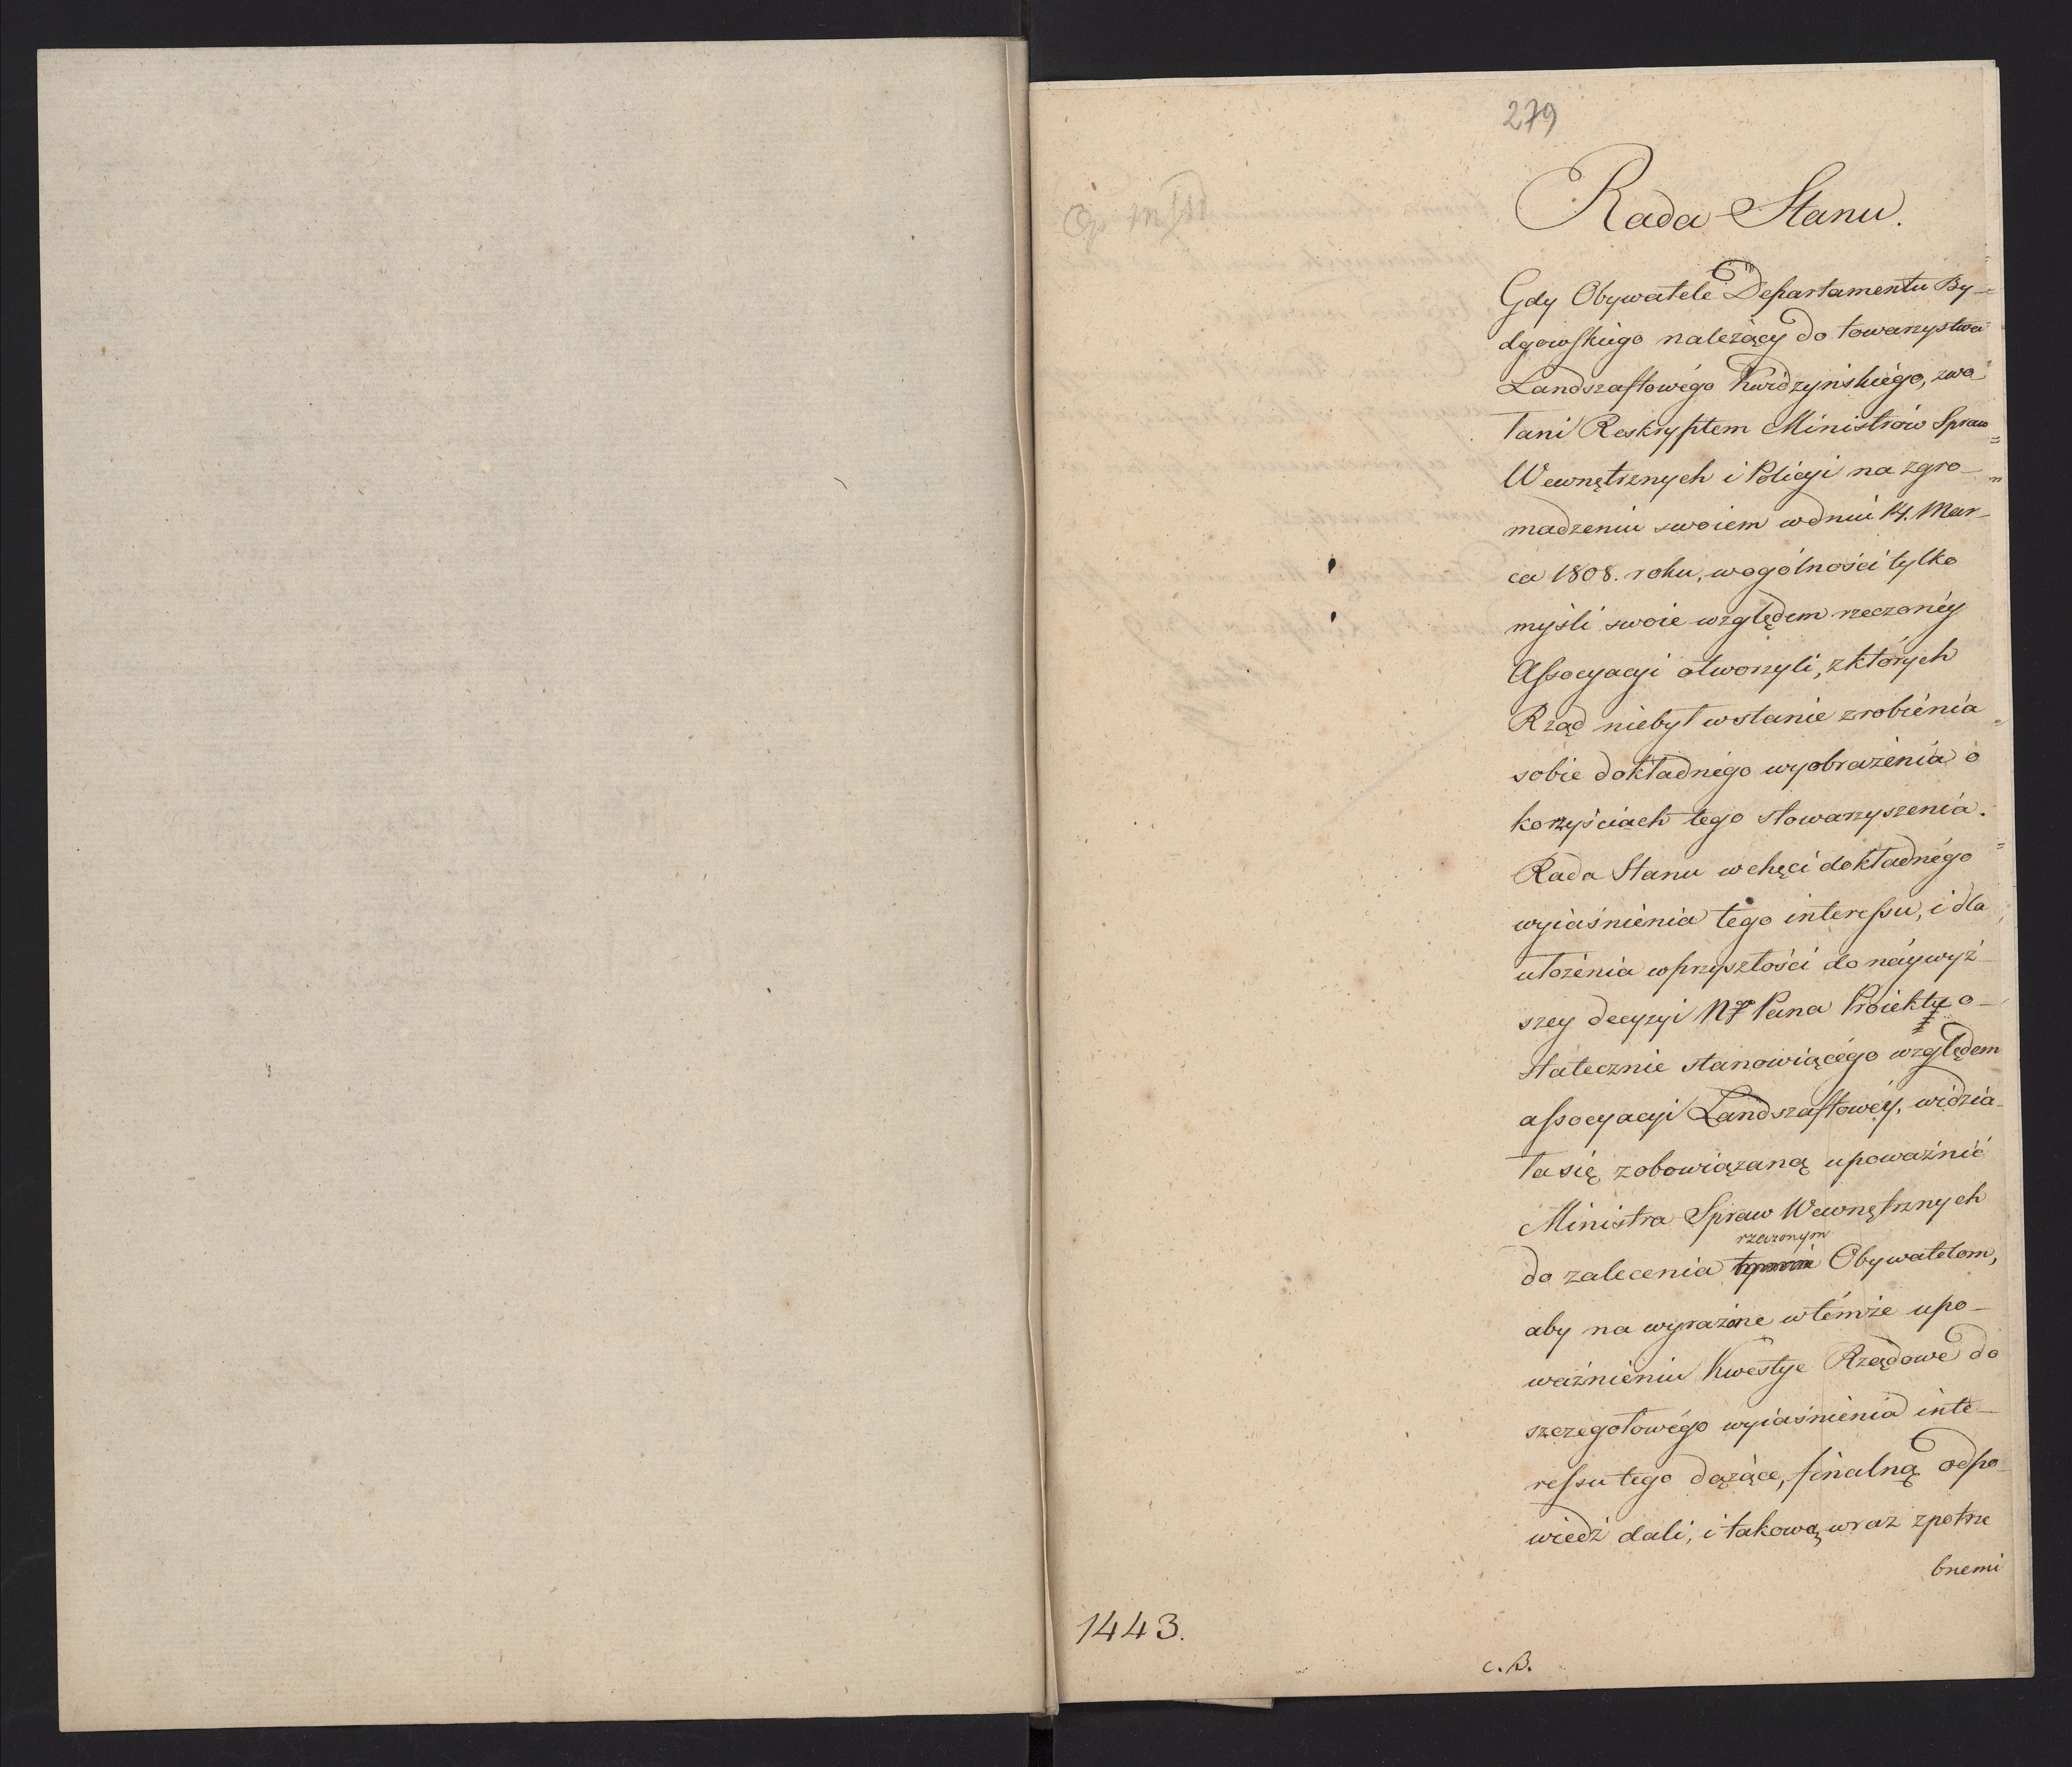 279
Rada Stanu.
Gdy Obywatele Departamentu By-
dgowskiego należący do towarzystwa
Landszaftowego Kwidzyńskiego, zwo
łani Reskryptem Ministrów Spraw
Wewnętrznych i Policyi na zgro-
madzeniu swoiem w dniu 14. Mar-
ca 1808. roku, wogólności tylko
myśli swoie względem rzeczonéy
Assocyacyi otworzyli, z których
Rząd niebył wstanie zrobienia
sobie dokładnégo wyobrażénia o
korzyściach tego stowarzyszenia.
Rada Stanu w chęci dokładnégo
wyiaśnienia tego interessu, i dla
ułożénia wprzyszłości do naywyż-
szey decyzyi Ngo Pana Proiektu o-
statecznie stanowiącégo względem
assocyacyi Landszaftowéy, widzia-
ła się zobowiązaną upoważnić
Ministra Spraw Wewnętrznych
rzeczonym
do zalecenia Obywatelom,
aby na wyrażone w témże upo-
ważnieniu Kwestye Rządowe do
szczegołowégo wyiaśnienia inte-
ressu tego dążące, finalną odpo-
wiedź dali, i takową wraz zpotrze
bnemi
1443.
c. B.